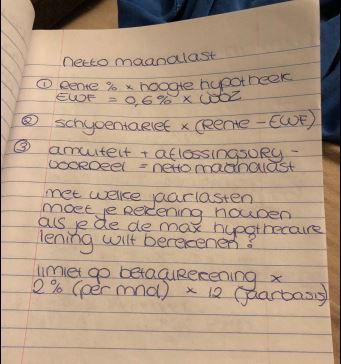 netto maandlast
① Rente % x hoogte hypotheek
EWF = 0,6% x WOZ
② schijventarief x (Rente - EWF)
③ annuiteit + aflossingsvrij -
voordeel = netto maandlast
met welke jaarlasten
moet je rekening houden
als je de de max hypothecaire
lening wilt berekenen?
limiet op betaalrekening x
2% (per mnd) x 12 (jaarbasis)